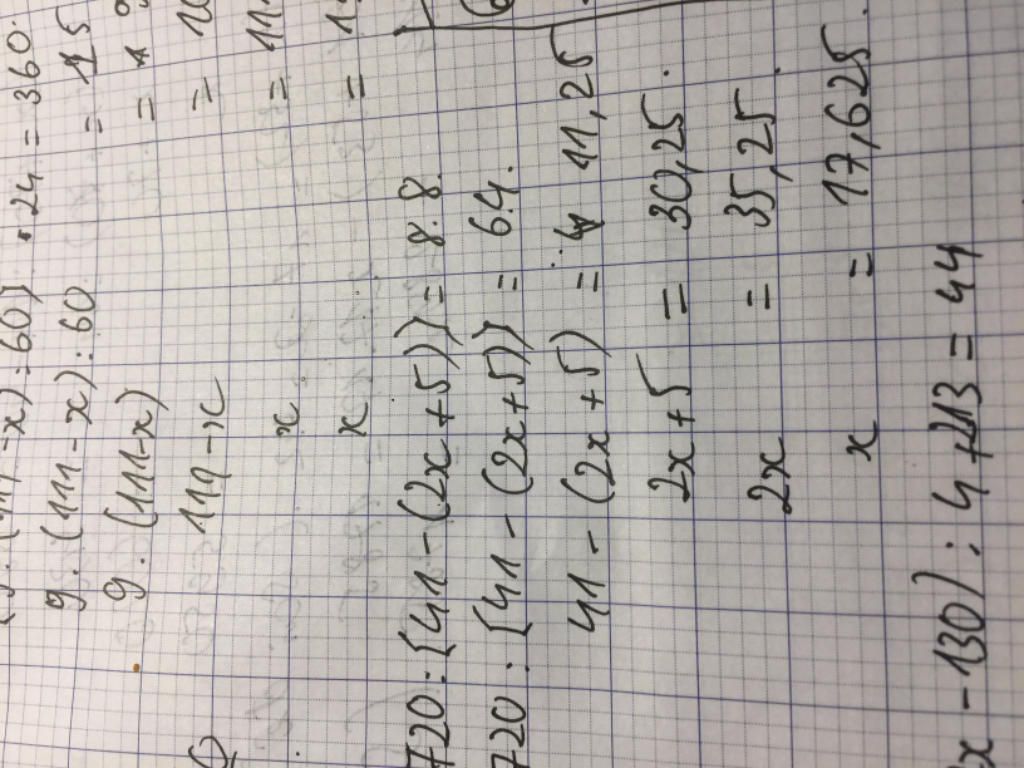 - x) : 60] . 24 = 360.
9 . (111 - x) : 60 = 15
9 . (111 - x) =
111 - x = 10
x = 11
x = 1
720 : [41 - (2x + 5)] = 8.8.
720 : [41 - (2x + 5)] = 64.
41 - (2x + 5) = 11,25
2x + 5 = 30,25.
2x = 35,25.
x = 17,625.
x - 130) : 4 + 213 = 44